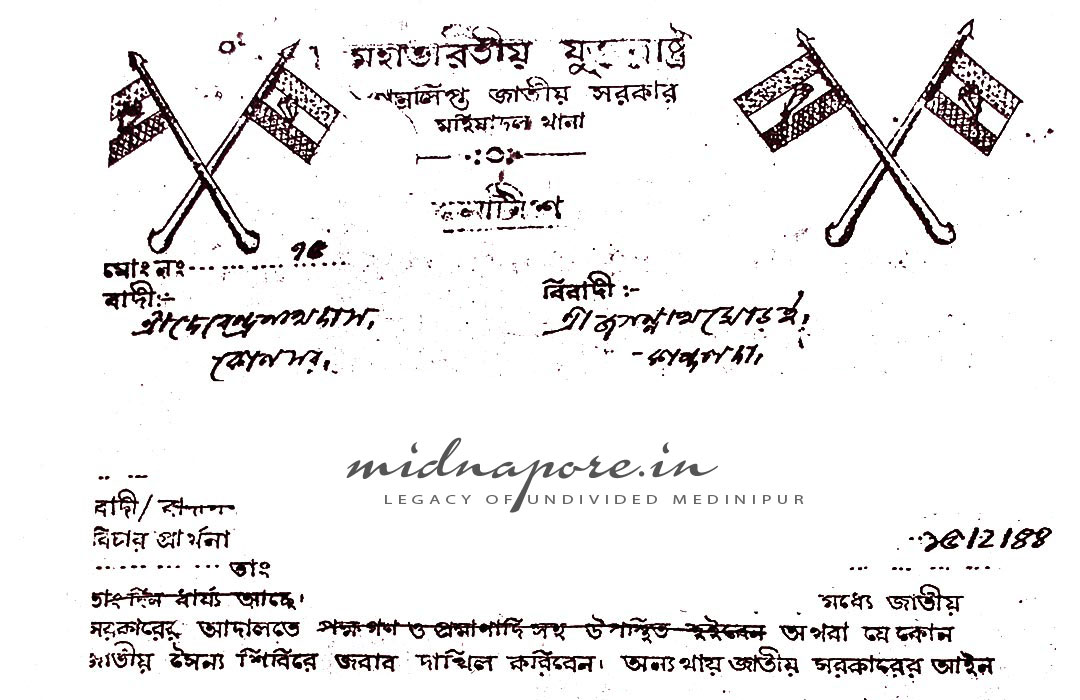 মহাভারতীয় যুক্তরাষ্ট্র
তাম্রলিপ্ত জাতীয় সরকার
মহিষাদল থানা
মোং নং ৭৫
বাদী :-
বিবাদী :-
শ্রীদেবেন্দ্রনাথ দাস,
শ্রীজগন্নাথ ঘোড়ই,
midnapore.in
LEGACY OF UNDIVIDED MEDINIPUR
বাদী/
বিচার প্রার্থনা
১৫/2/৪৪
তাং
তাং দিন ধার্য্য আছে।
মধ্যে জাতীয়
সরকারের আদালতে পক্ষগণ ও প্রমাণাদি সহ উপস্থিত হইবেন অথবা যে কোন
জাতীয় সৈন্য শিবিরে জবাব দাখিল করিবেন। অন্যথায় জাতীয় সরকারের আইন